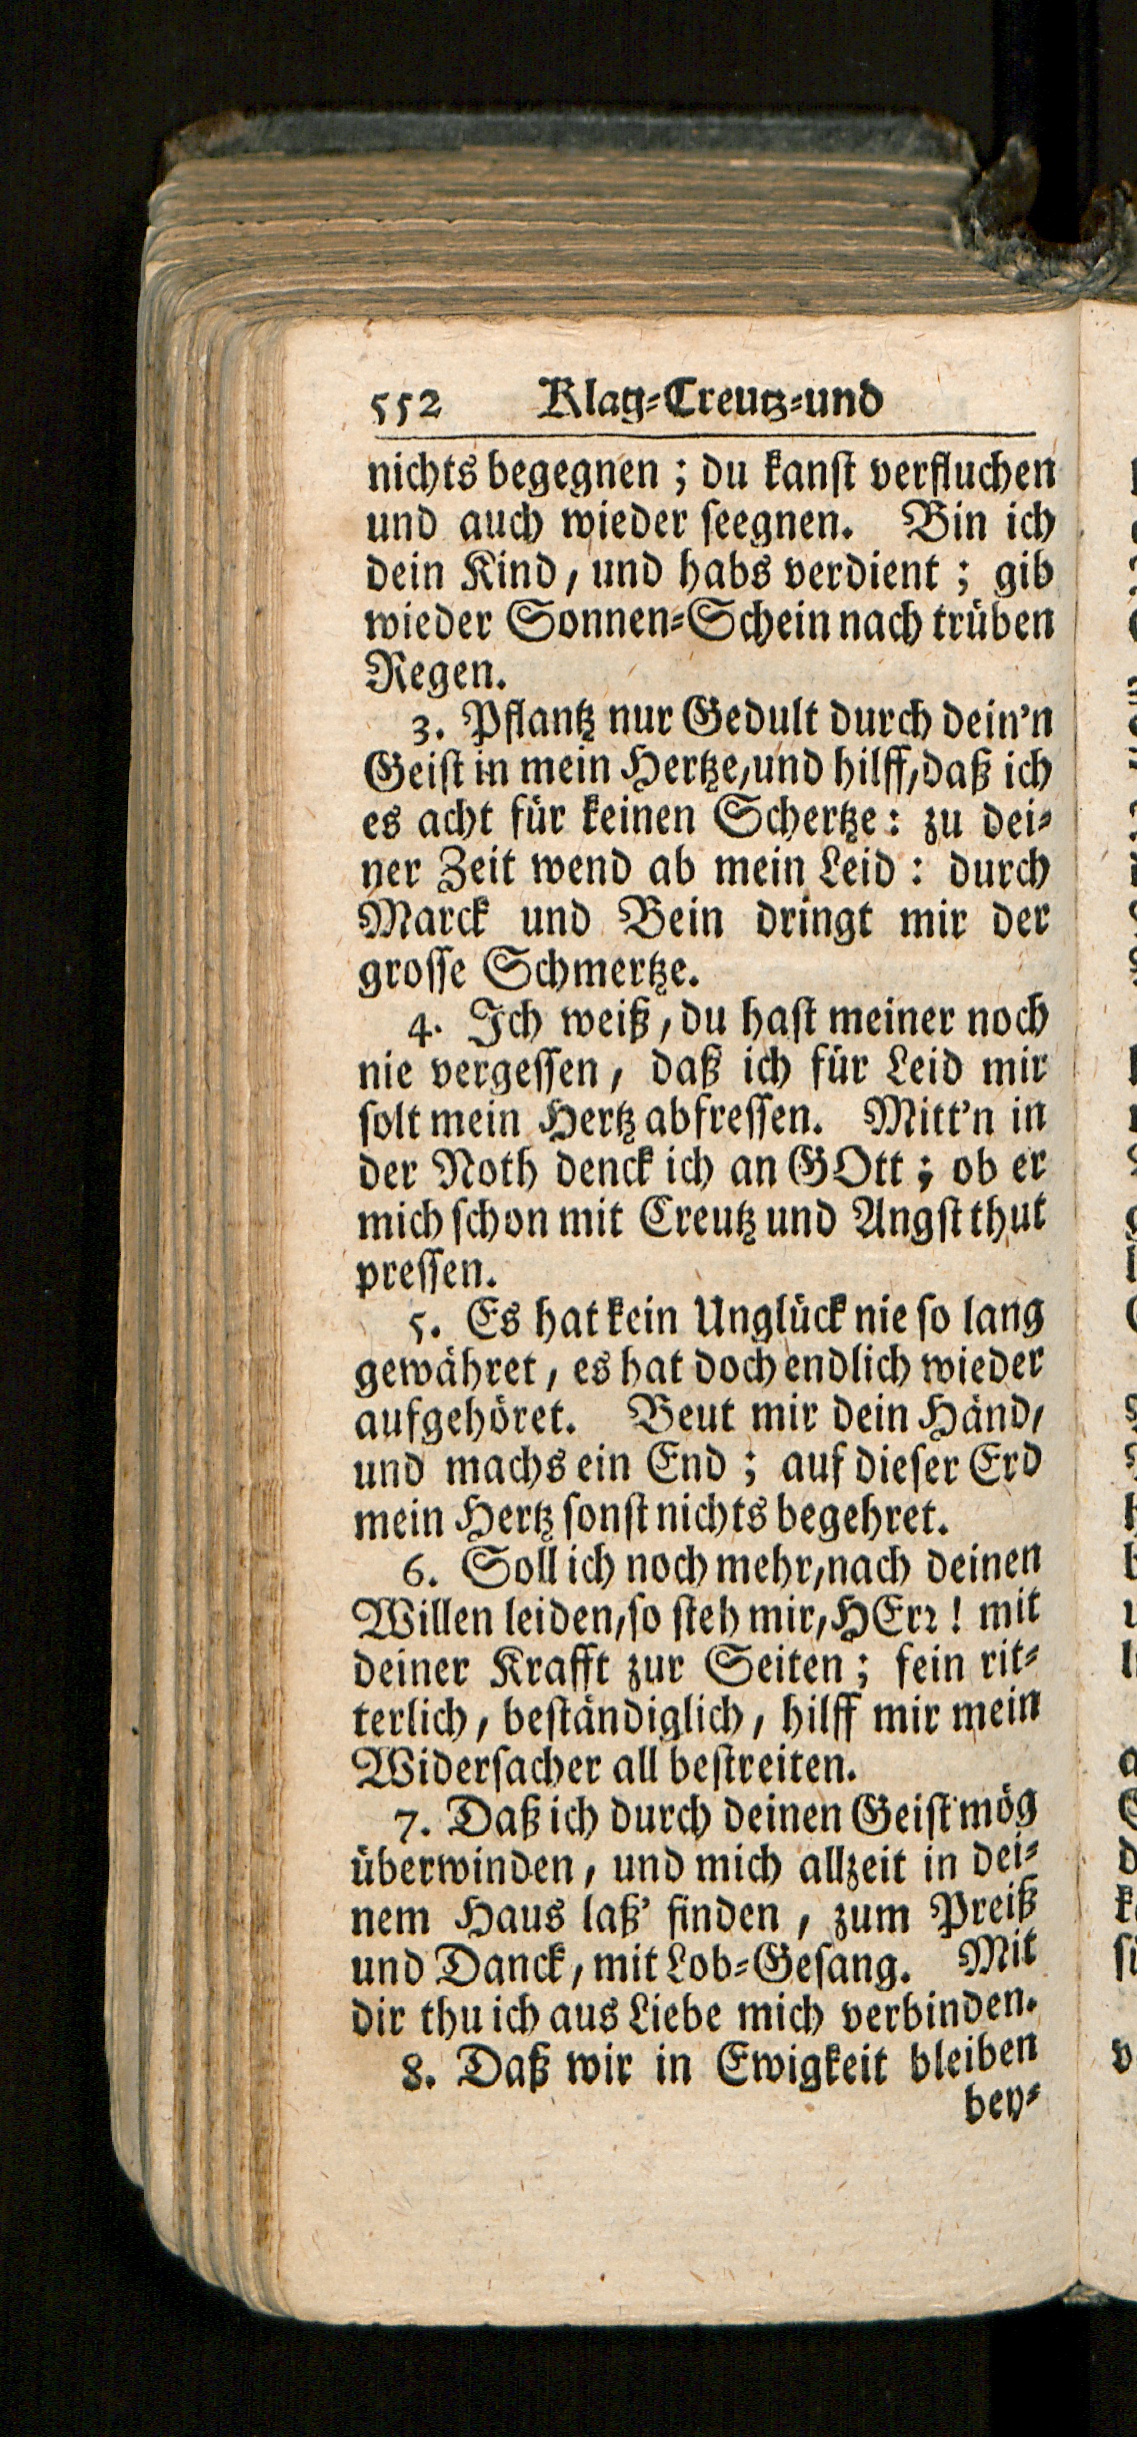 552 Klag-Creutz-und
nichts begegnen ; du kanst verfluchen
und auch wieder seegnen. Bin ich
dein Kind, und habs verdient ; gib
wieder Sonnen-Schein nach trüben
Regen.
3. Pflantz nur Gedult durch dein'n
Geist in mein Hertze, und hilff, daß ich
es acht für keinen Schertze: zu dei-
ner Zeit wend ab mein Leid : durch
Marck und Bein dringt mir der
grosse Schmertze.
4. Ich weiß, du hast meiner noch
nie vergessen, daß ich für Leid mir
solt mein Hertz abfressen. Mitt'n in
der Noth denck ich an GOtt ; ob er
mich schon mit Creutz und Angst thut
pressen.
5. Es hat kein Unglück nie so lang
gewähret, es hat doch endlich wieder
aufgehöret. Beut mir dein Händ,
und machs ein End ; auf dieser Erd
mein Hertz sonst nichts begehret.
6. Soll ich noch mehr, nach deinen
Willen leiden, so steh mir, HErr ! mit
deiner Krafft zur Seiten ; fein rit-
terlich, beständiglich, hilff mir mein
Widersacher all bestreiten.
7. Daß ich durch deinen Geist mög
überwinden, und mich allzeit in dei-
nem Haus laß' finden , zum Preiß
und Danck, mit Lob-Gesang. Mit
dir thu ich aus Liebe mich verbinden.
8. Daß wir in Ewigkeit bleiben
bey-